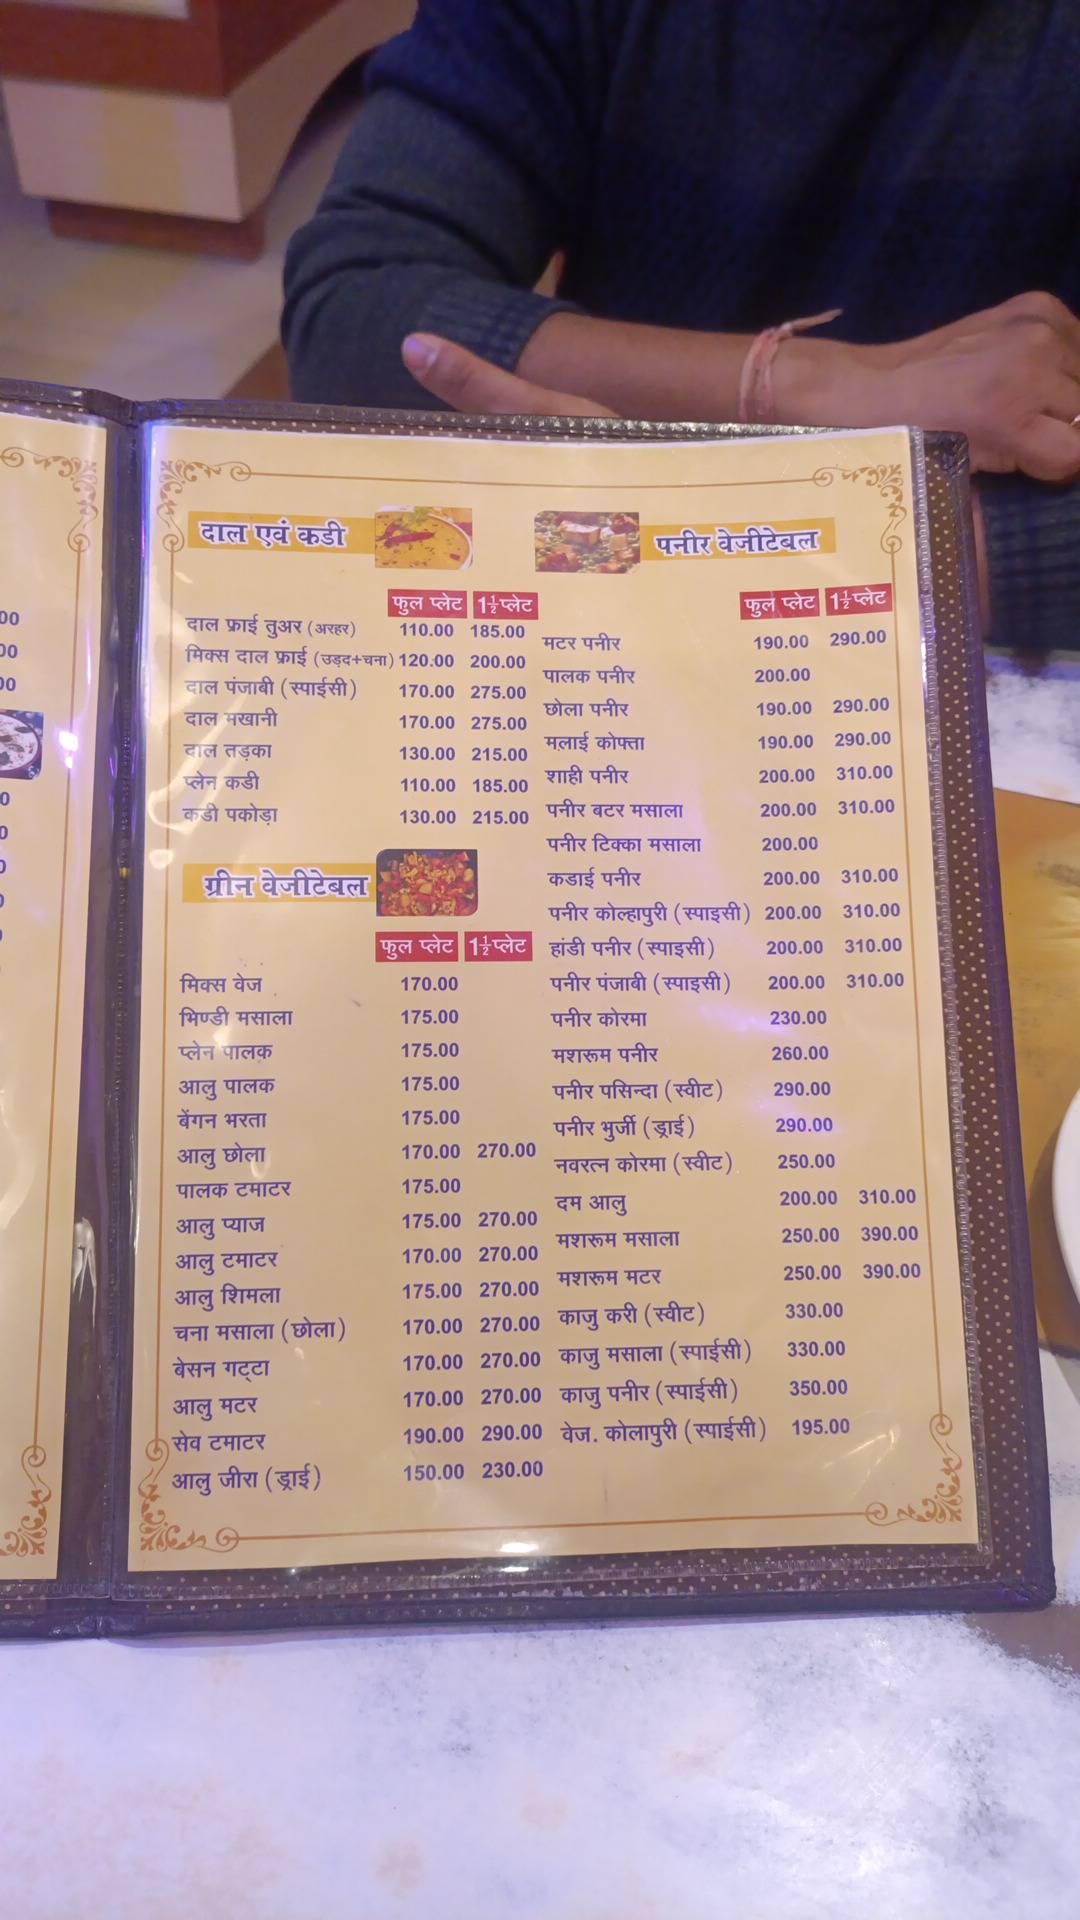 00
00
00
0
0
0
0
0
दाल एवं कडी
फुल प्लेट 1½प्लेट
दाल फ्राई तुअर (अरहर) 110.00 185.00
मिक्स दाल फ्राई (उड़द+चना) 120.00 200.00
दाल पंजाबी (स्पाईसी) 170.00 275.00
दाल मखानी 170.00 275.00
दाल तड़का 130.00 215.00
प्लेन कडी 110.00 185.00
कडी पकोड़ा 130.00 215.00
ग्रीन वेजीटेबल
फुल प्लेट 1½प्लेट
मिक्स वेज 170.00
भिण्डी मसाला 175.00
प्लेन पालक 175.00
आलु पालक 175.00
बेंगन भरता 175.00
आलु छोला 170.00 270.00
पालक टमाटर 175.00
आलु प्याज 175.00 270.00
आलु टमाटर 170.00 270.00
आलु शिमला 175.00 270.00
चना मसाला (छोला) 170.00 270.00
बेसन गट्टा 170.00 270.00
आलु मटर 170.00 270.00
सेव टमाटर 190.00 290.00
आलु जीरा (ड्राई) 150.00 230.00
पनीर वेजीटेबल
फुल प्लेट 1½प्लेट
मटर पनीर 190.00 290.00
पालक पनीर 200.00
छोला पनीर 190.00 290.00
मलाई कोफ्ता 190.00 290.00
शाही पनीर 200.00 310.00
पनीर बटर मसाला 200.00 310.00
पनीर टिक्का मसाला 200.00
कडाई पनीर 200.00 310.00
पनीर कोल्हापुरी (स्पाइसी) 200.00 310.00
हांडी पनीर (स्पाइसी) 200.00 310.00
पनीर पंजाबी (स्पाइसी) 200.00 310.00
पनीर कोरमा 230.00
मशरूम पनीर 260.00
पनीर पसिन्दा (स्वीट) 290.00
पनीर भुर्जी (ड्राई) 290.00
नवरत्न कोरमा (स्वीट) 250.00
दम आलु 200.00 310.00
मशरूम मसाला 250.00 390.00
मशरूम मटर 250.00 390.00
काजु करी (स्वीट) 330.00
काजु मसाला (स्पाईसी) 330.00
काजु पनीर (स्पाईसी) 350.00
वेज. कोलापुरी (स्पाईसी) 195.00